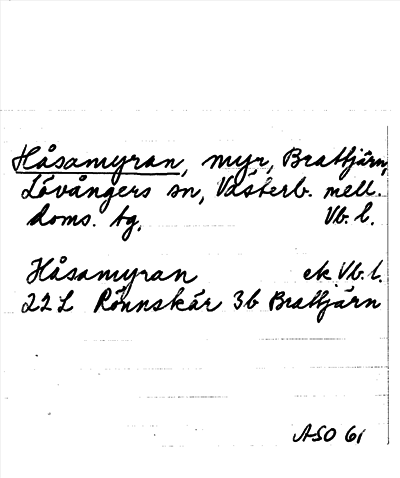 Håsamyran, myr, Brattjärn,
Lövångers sn, Västerb. mell.
doms. tg, Vb. l.
Håsamyran ek. Vb. l.
22 L Rönnskär 3b Brattjärn
ASO 61